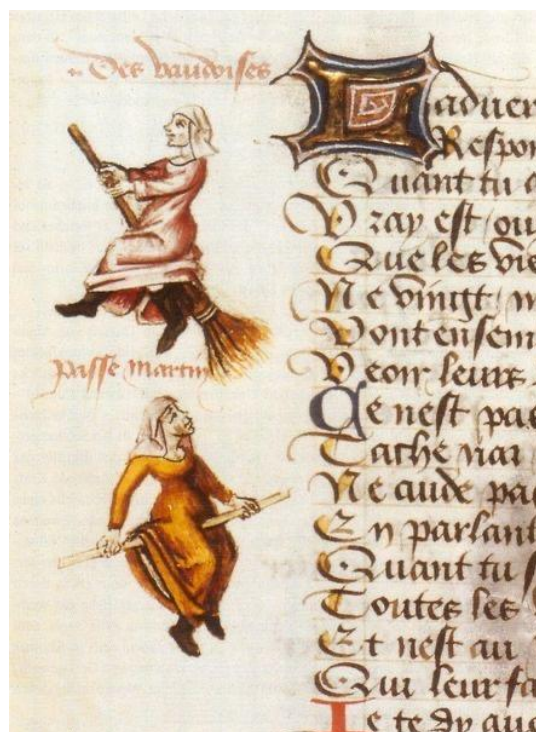 Des vaudoises
Laduer
Respon
Quant tu
Vray est / ou
Que les vie
Ne vingt /
Vont ensem
passe martin
Veoir leurs
Ce nest pas
Tache nai
Ne cuide pa
En parlant
Quant tu
Toutes les
Et nest au
Qui leur fa
Ie te dy que